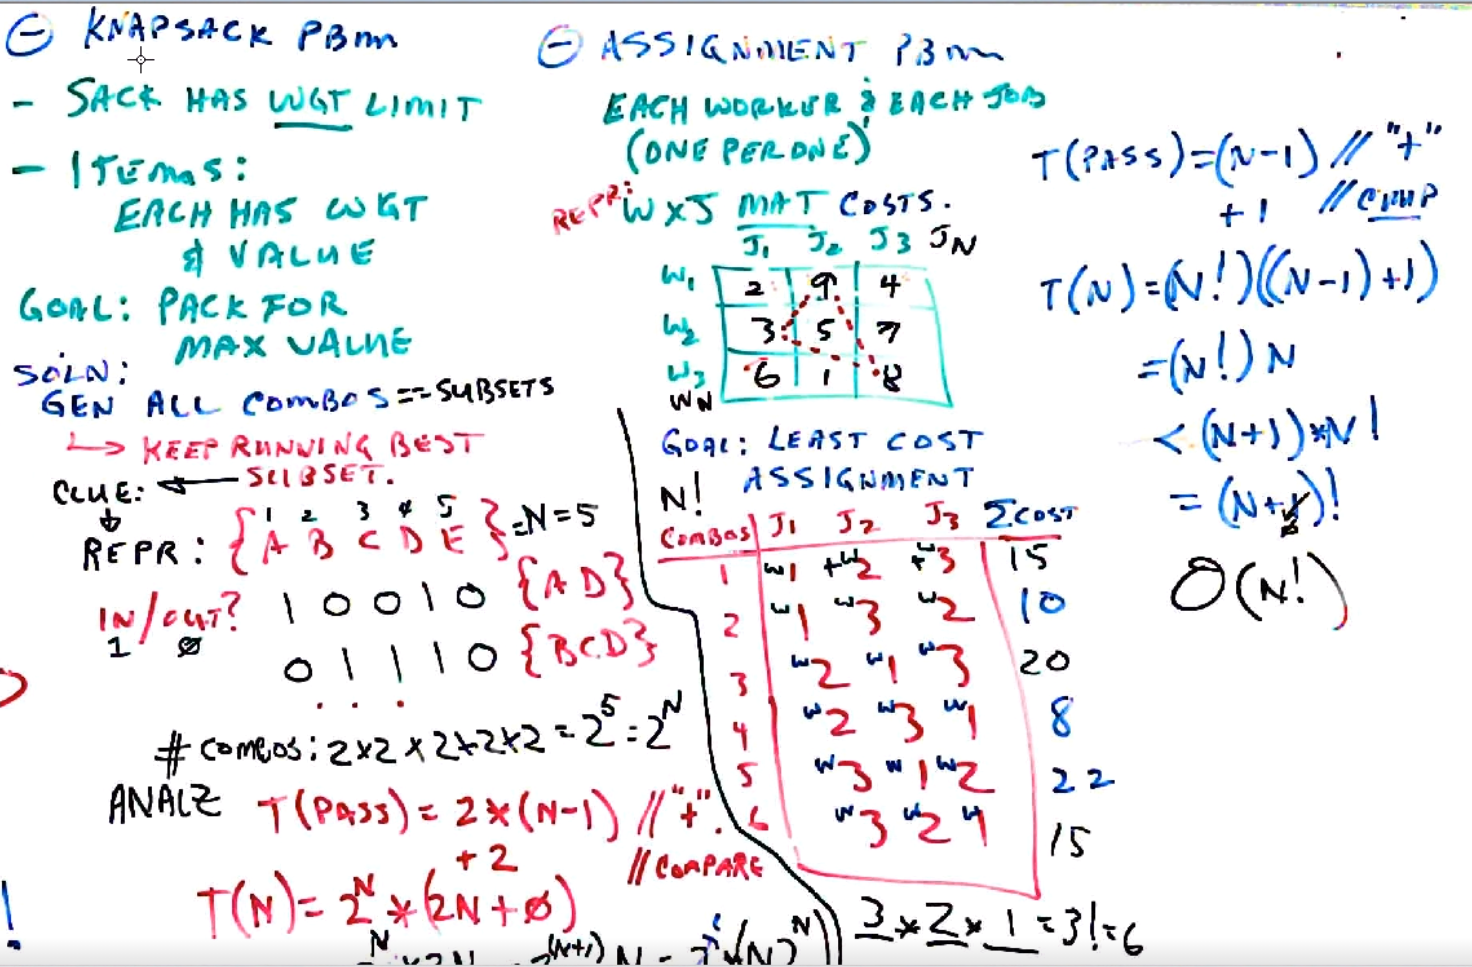 ⊖ KNAPSACK PBM
- SACK HAS WGT LIMIT
- ITEMS:
EACH HAS WGT
& VALUE
GOAL: PACK FOR
MAX VALUE
SOLN:
GEN ALL COMBOS == SUBSETS
↳ KEEP RUNNING BEST
SUBSET.
CLUE: ←
↓
REPR: {A B C D E} = N=5
1 2 3 4 5
IN/OUT?
1 0
1 0 0 1 0 {A D}
0 1 1 1 0 {BCD}
# COMBOS: 2x2x2x2x2 = 2^5 = 2^N
ANALZ
T(PASS) = 2*(N-1) // "+".
+ 2 // COMPARE
T(N) = 2^N * (2N+0)
⊖ ASSIGNMENT PBM
EACH WORKER & EACH JOB
(ONE PER ONE)
REPR: W x J MAT COSTS.
J1 J2 J3 JN
W1 2 9 4
W2 3 5 7
W3 6 1 8
WN
GOAL: LEAST COST
ASSIGNMENT
N!
COMBOS J1 J2 J3 ΣCOST
1 W1 +W2 +W3 15
2 W1 W3 W2 10
3 W2 W1 W3 20
4 W2 W3 W1 8
5 W3 W1 W2 22
6 W3 W2 W1 15
3*2*1 = 3! = 6
T(PASS) = (N-1) // "+"
+ 1 // CMP
T(N) = (N!)((N-1)+1)
= (N!) N
< (N+1)*N!
= (N+1)!
O(N!)